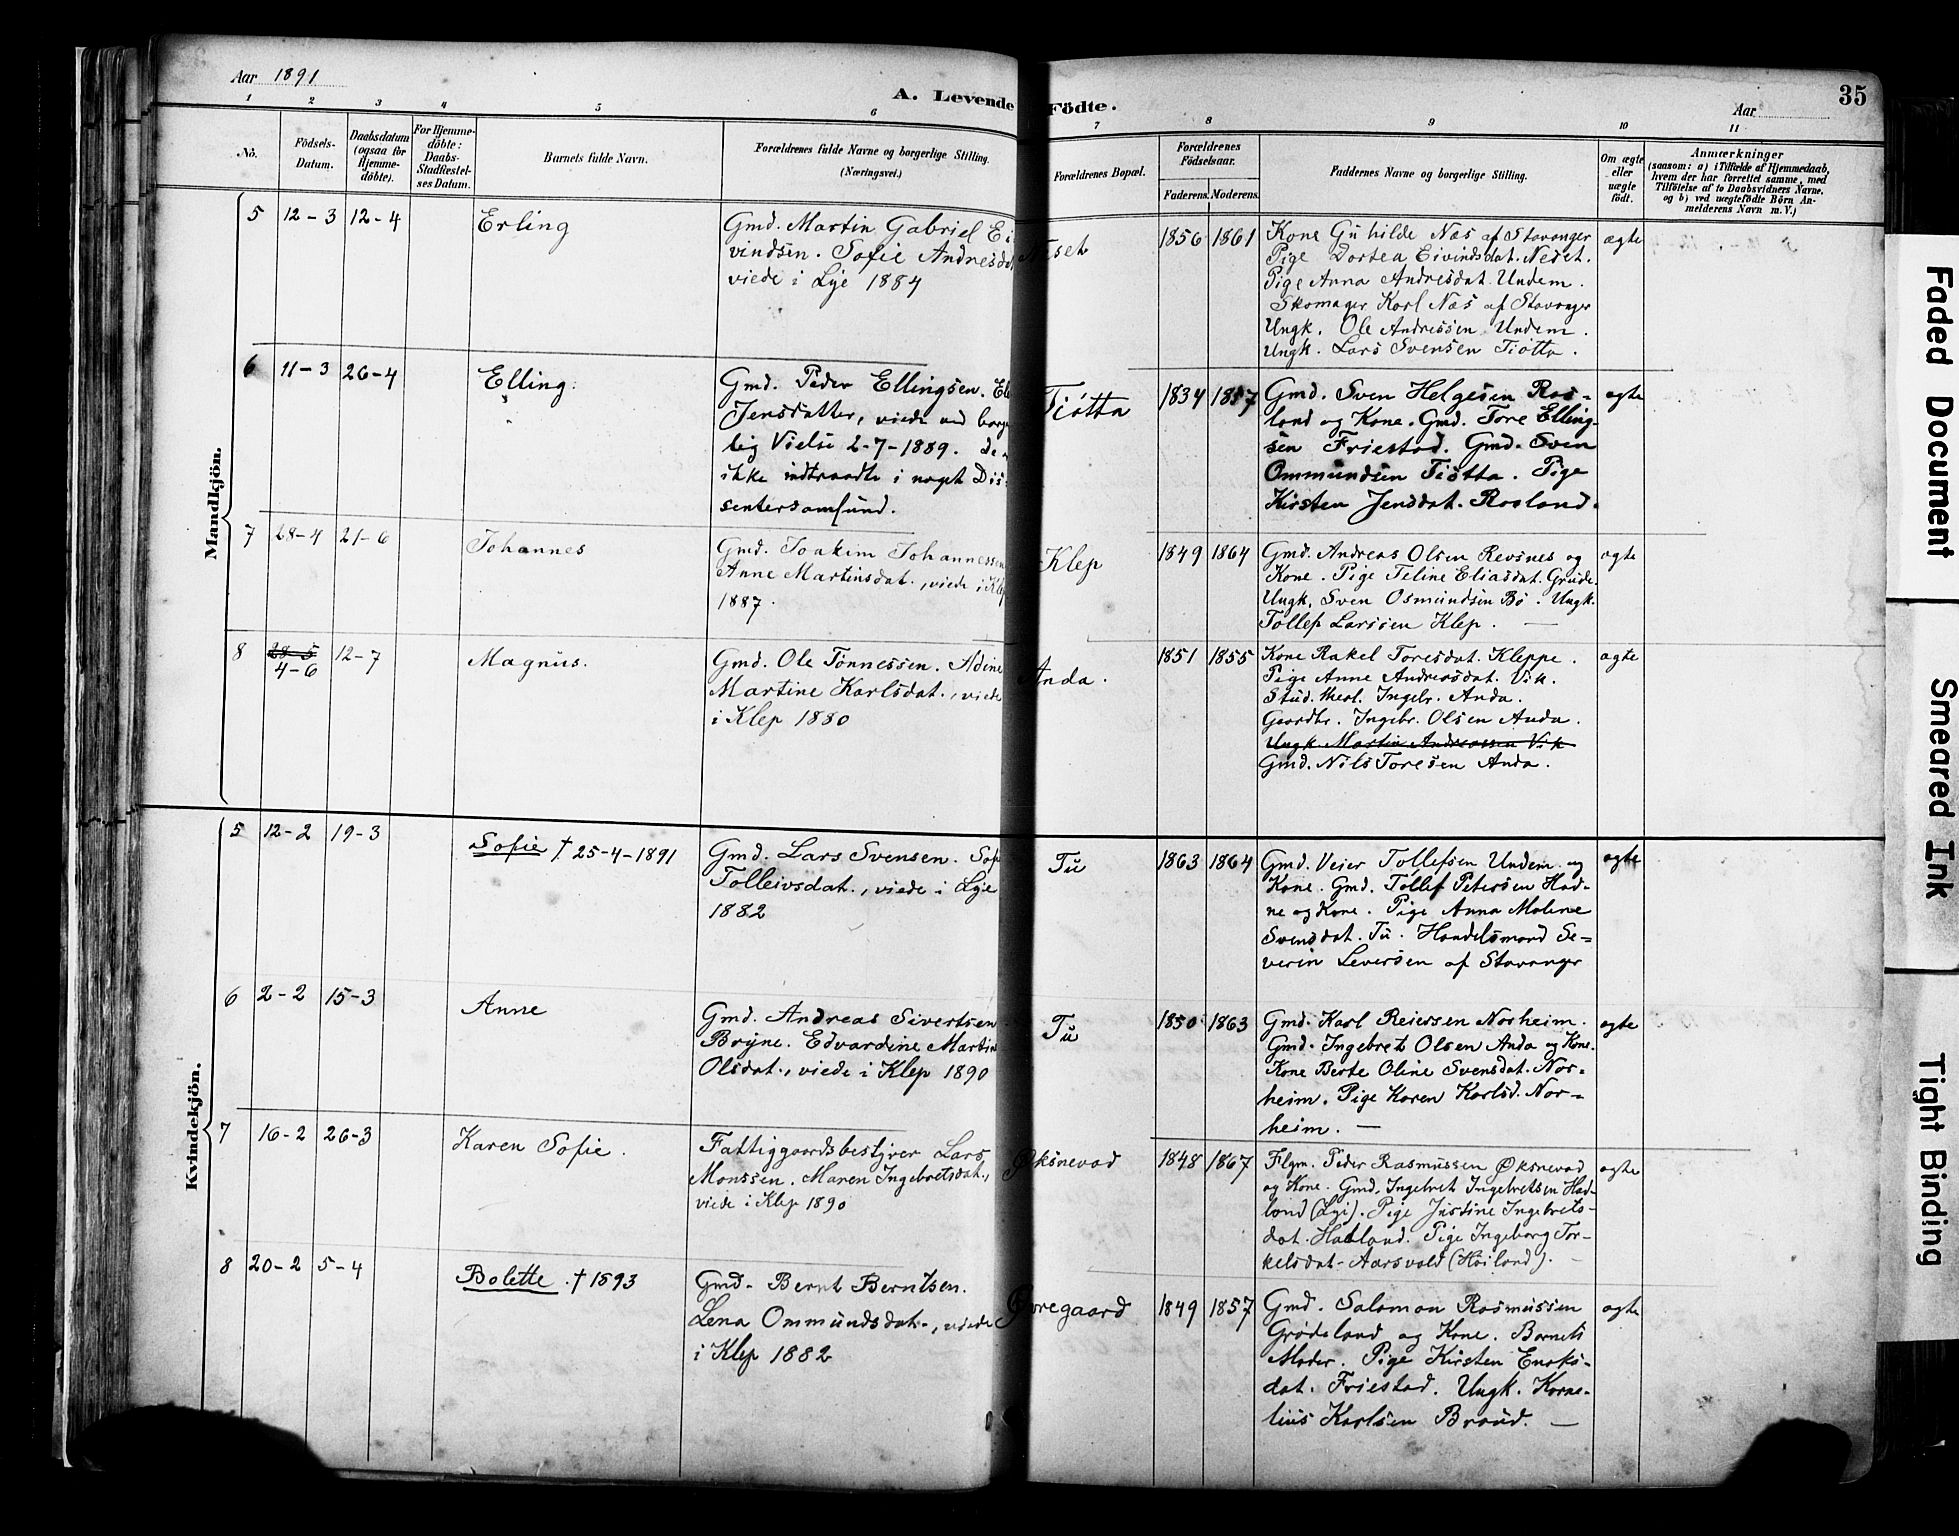 Aar 1891
A. Levende Födte.
Aar
35
1 2 3 4 5 6 7 8 9 10 11
No.
Födsels-
Datum.
Daabsdatum
(ogsaa for
Hjemme-
döbte).
For Hjemme-
döbte:
Daabs-
Stadfæstel-
ses Datum.
Barnets fulde Navn.
Forældrenes fulde Navne og borgerlige Stilling.
(Næringsvei.)
Forældrenes Bopæl.
Forældrenes
Födselsaar.
Faderens. Moderens.
Faddernes Navne og borgerlige Stilling.
Om ægte
eller
uægte
födt.
Anmærkninger
(saasom: a) i Tilfælde af Hjemmedaab,
hvem der har forrettet samme, med
Tilföielse af to Daabsvidners Navne,
og b) ved uægtefödte Börn An-
melderens Navn m. V.)
Mandkjön.
5 12-3 12-4 Erling
Gmd. Martin Gabriel Ei
vindsen. Sofie Andresdat
viede i Lye 1884
1856 1861
Kone Guhilde Næs af Stavanger
Pige Dortea Eivindsdat. Neset.
Pige Anna Andresdat. Undem.
Skomager Karl Næs af Stavanger
Ungk. Ole Andressen Undem.
Ungk. Lars Svensen Tiøtta.
ægte
6 11-3 26-4 Elling.
Gmd. Peder Ellingsen.
Jensdatter, viede ved borg
lig Vielse 2-7-1889. De
ikke indtraadte i noget Dis-
sentersamfund.
Tiøtta
1834 1857
Gmd. Sven Helgesen Ros-
land og Kone. Gmd. Tore Elling-
sen Friestad. Gmd. Sven
Ommundsen Tiøtta. Pige
Kirsten Jensdat. Rosland.
ægte
7 28-4 21-6 Johannes
Gmd. Joakim Johannessen
Anne Martinsdat., viede i Klep
1887.
Klep
1849 1864
Gmd. Andreas Olsen Revsnes og
Kone. Pige Teline Eliasdat. Grude.
Ungk. Sven Osmundsen Bø. Ungk.
Tollef Larssen Klep.
ægte
8 28-5
4-6 12-7 Magnus.
Gmd. Ole Tønnessen. Adine
Martine Karlsdat., viede
i Klep 1880
Anda.
1851 1855
Kone Rakel Toresdat. Kleppe.
Pige Anne Andreasdat. Vik.
Stud. theol. Ingebr. Anda.
Gaardbr. Ingebr. Olsen Anda.
Ungk. Martin Andreassen Vik
Gmd. Nils Toresen Anda.
ægte
Kvindekjön.
5 12-2 19-3 Sofie † 25-4-1891
Gmd. Lars Svensen. Sofi
Tolleivsdat., viede i Lye
1882
Tu
1863 1864
Gmd. Veier Tollefsen Undem og
Kone. Gmd. Tollef Petersen Had-
ne og Kone. Pige Anna Malene
Svensdat. Tu. Handelsmand Se-
verin Leversen af Stavanger
ægte
6 2-2 15-3 Anne
Gmd. Andreas Sivertsen
Bryne. Edvardine Martin
Olsdat., viede i Klep 1890
Tu
1850 1863
Gmd. Karl Reierssen Norheim.
Gmd. Ingebret Olsen Anda og Kone.
Kone Berte Oline Svensdat. Nor-
heim. Pige Karen Karlsd. Nor-
heim.
ægte
7 16-2 26-3 Karen Sofie.
Fattiggaardsbestyrer Lars
Monssen. Maren Ingebretsdat.,
viede i Klep 1890
Øksnevad
1848 1867
Flgm. Peder Rasmussen Øksnevad
og Kone. Gmd. Ingebret Ingebretsen Had-
land (Lyi). Pige Justine Ingebrets-
dat. Hadland. Pige Ingeborg Tor-
kelsdat. Aarsvold (Høiland).
ægte
8 20-2 5-4 Bolette. † 1893
Gmd. Bernt Berntsen.
Lena Ommundsdat., viede
i Klep 1882
Øvregaard
1849 1857
Gmd. Salomon Rasmussen
Grødeland og Kone. Barnets
Moder. Pige Kirsten Enoks-
dat. Friestad. Ungk. Korne-
lius Karlsen Braud.
ægte
Faded Document
Smeared Ink
Tight Binding